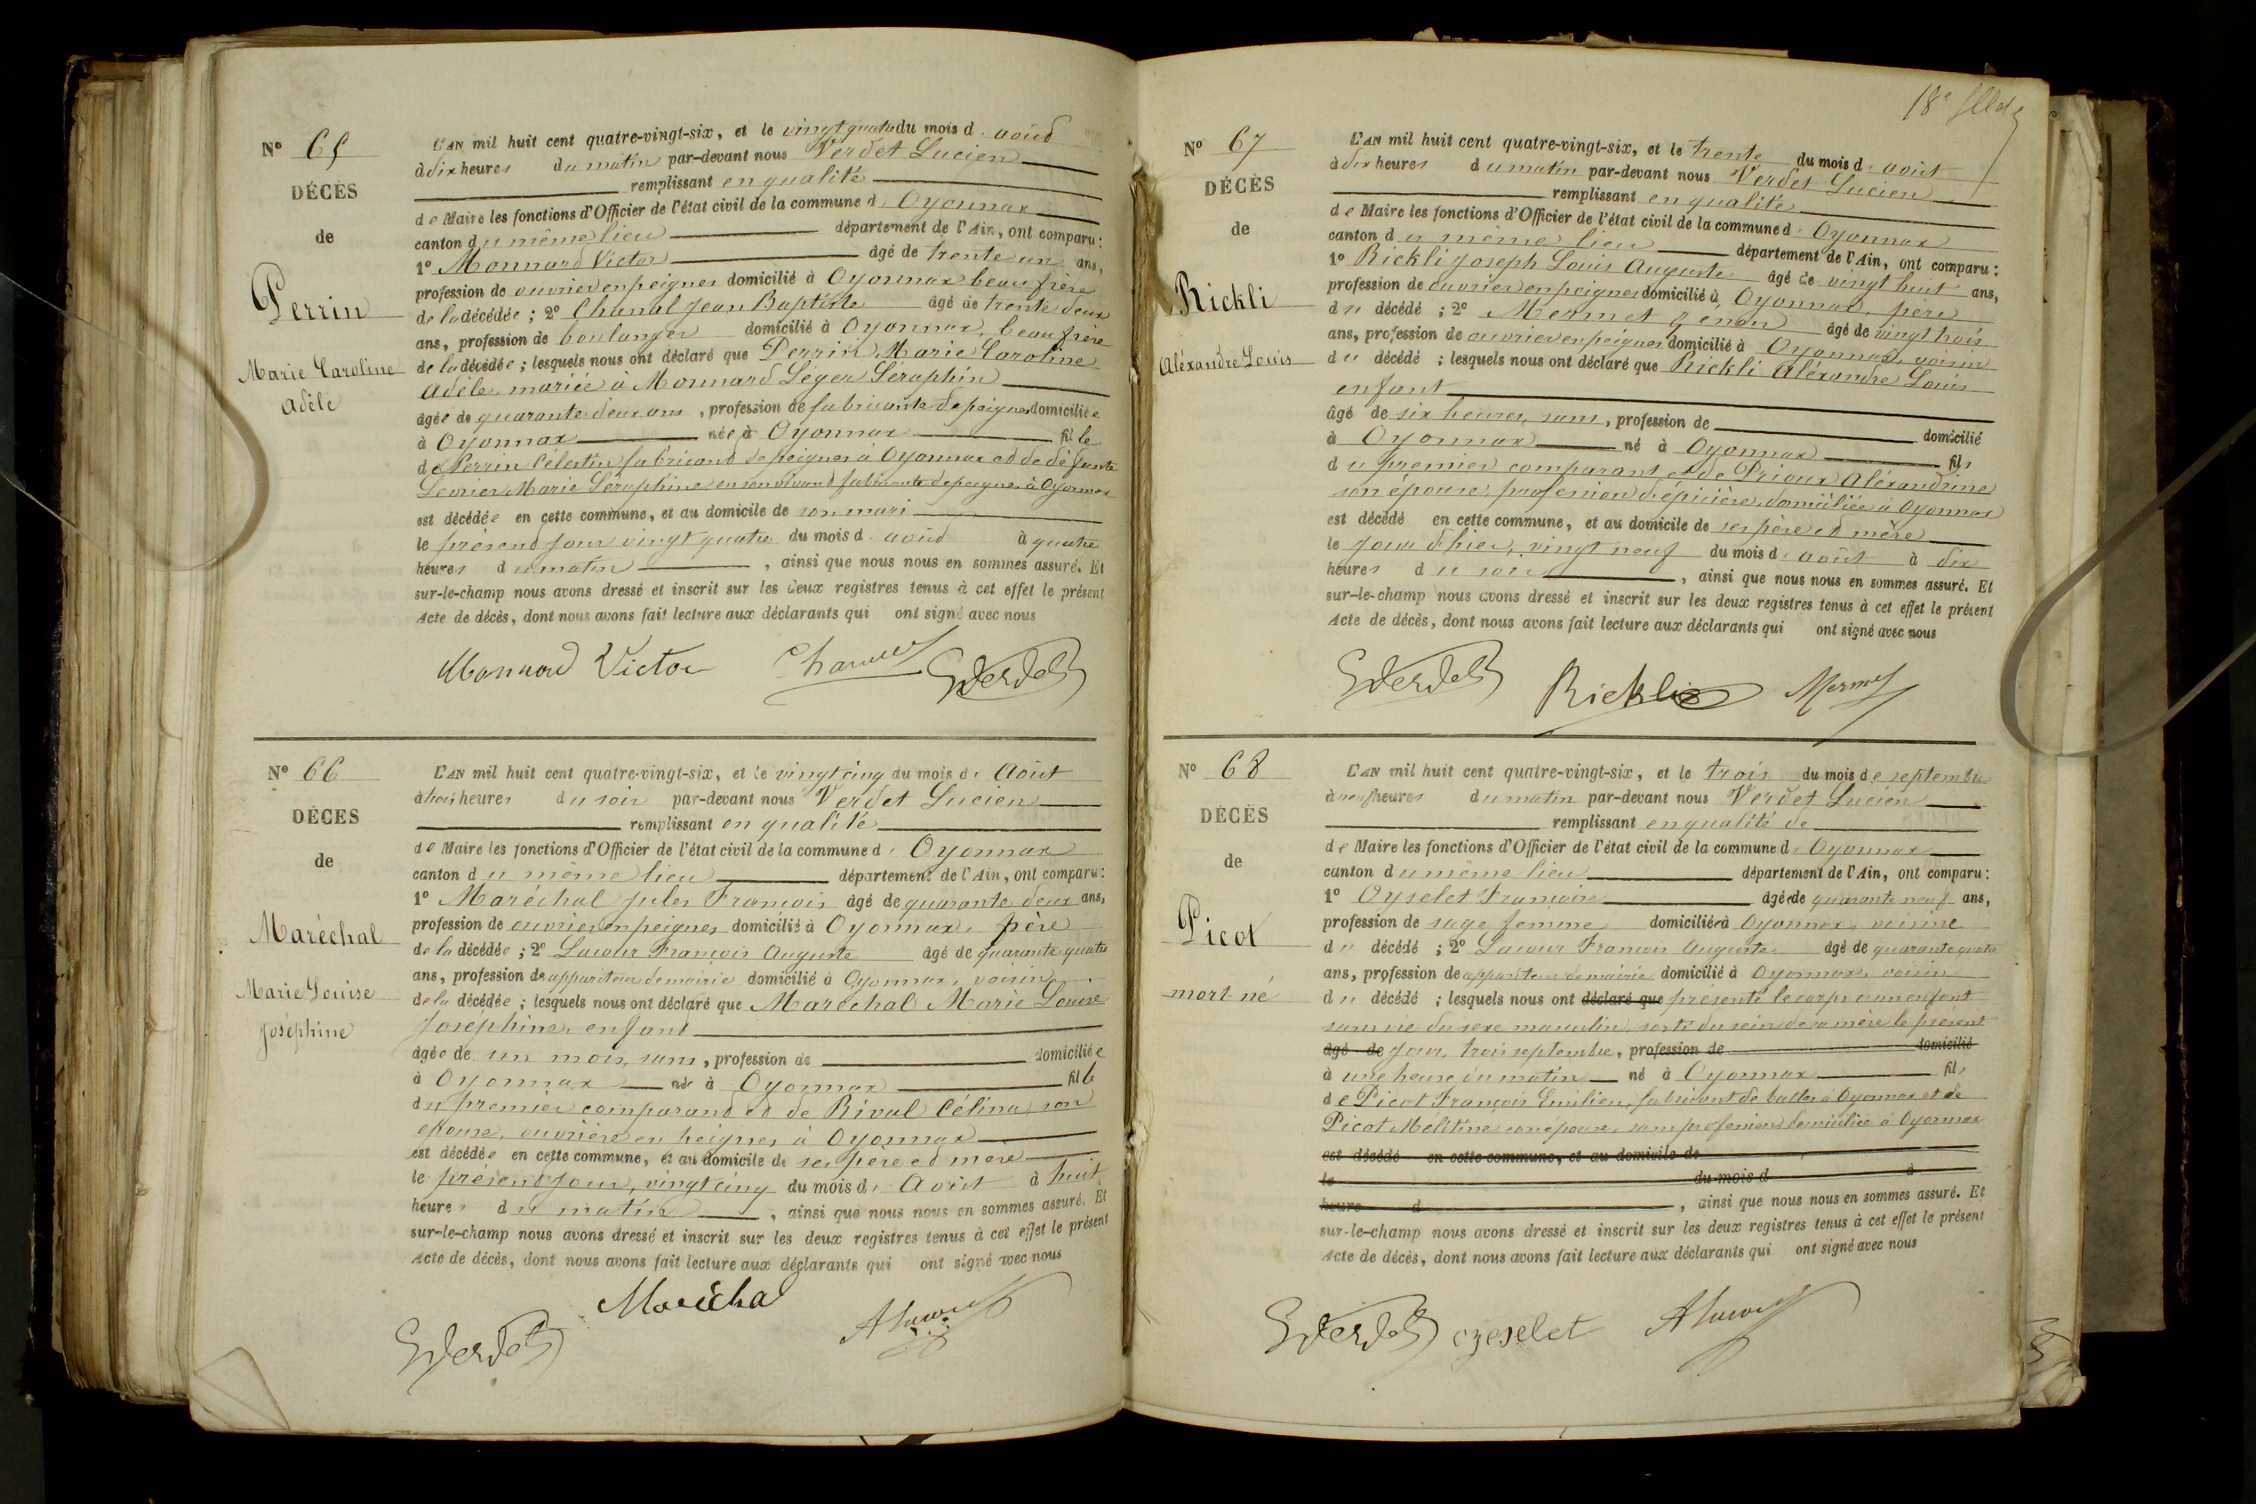 N° 65
DÉCÈS
de
Perrin
Marie Caroline
Adèle
L'AN mil huit cent quatre-vingt-six, et le vingt quatre du mois d'août
à dix heures du matin par-devant nous Verdet Lucien
remplissant en qualité
de Maire les fonctions d'Officier de l'état civil de la commune d'Oyonnax
canton du même lieu département de l'Ain, ont comparu :
1° Monnard Victor âgé de trente un ans,
profession de ouvrier en peignes domicilié à Oyonnax beau frère
de la décédée ; 2° Chanal Jean Baptiste âgé de trente deux
ans, profession de boulanger domicilié à Oyonnax, beau frère
de la décédée ; lesquels nous ont déclaré que Perrin Marie Caroline
Adèle, mariée à Monnard Léger Seraphin
âgée de quarante deux ans, profession de fabricante de peignes domiciliée
à Oyonnax née à Oyonnax fille
de Perrin Célestin fabricant de peignes à Oyonnax et de défunte
Levrier Marie Séraphine, en son vivant fabricante de peignes à Oyonnax
est décédée en cette commune, et au domicile de son mari
le présent jour vingt quatre du mois d'août à quatre
heures du matin, ainsi que nous nous en sommes assuré. Et
sur-le-champ nous avons dressé et inscrit sur les deux registres tenus à cet effet le présent
Acte de décès, dont nous avons fait lecture aux déclarants qui ont signé avec nous
Monnard Victor Chanal Verdet
N° 66
DÉCES
de
Maréchal
Marie Louise
Joséphine
L'AN mil huit cent quatre-vingt-six, et le vingt cinq du mois d'Août
à trois heures du soir par-devant nous Verdet Lucien
remplissant en qualité
de Maire les fonctions d'Officier de l'état civil de la commune d'Oyonnax
canton du même lieu département de l'Ain, ont comparu :
1° Maréchal Jules François âgé de quarante deux ans,
profession de ouvrier en peignes domicilié à Oyonnax, père
de la décédée ; 2° Lacour François Auguste âgé de quarante quatre
ans, profession de appariteur de mairie domicilié à Oyonnax, voisin
de la décédée ; lesquels nous ont déclaré que Maréchal Marie Louise
Joséphine, enfant
âgée de un mois, sans, profession de domiciliée
à Oyonnax née à Oyonnax fille
du premier comparant et de Rival Célina, son
épouse, ouvrière en peignes à Oyonnax
est décédée en cette commune, et au domicile de ses père et mère
le présent jour, vingt cinq du mois d'Août à huit
heures du matin, ainsi que nous nous en sommes assuré. Et
sur-le-champ nous avons dressé et inscrit sur les deux registres tenus à cet effet le présent
Acte de décès, dont nous avons fait lecture aux déclarants qui ont signé avec nous
Maréchal
Verdet ALacour
18e
N° 67
DÉCÈS
de
Rickli
Aléxandre Louis
L'AN mil huit cent quatre-vingt-six, et le trente du mois d'août
à dix heures du matin par-devant nous Verdet Lucien
remplissant en qualité
de Maire les fonctions d'Officier de l'état civil de la commune d'Oyonnax
canton du même lieu département de l'Ain, ont comparu :
1° Rickli Joseph Louis Auguste âgé de vingt huit ans,
profession de ouvrier en peignes domicilié à Oyonnax, père
du décédé ; 2° Mermet Zenon âgé de vingt trois
ans, profession de ouvrier en peignes domicilié à Oyonnax, voisin
du décédé ; lesquels nous ont déclaré que Rickli Aléxandre Louis
enfant
âgé de six heures, sans, profession de domicilié
à Oyonnax né à Oyonnax fils
du premier comparant et de Prioux Aléxandrine
son épouse, profession d'épicière, domiciliée à Oyonnax
est décédé en cette commune, et au domicile de ses père et mère
le jour d'hier, vingt neuf du mois d'août à dix
heures du soir, ainsi que nous nous en sommes assuré. Et
sur-le-champ nous avons dressé et inscrit sur les deux registres tenus à cet effet le présent
Acte de décès, dont nous avons fait lecture aux déclarants qui ont signé avec nous
Verdet Rickli Mermet
N° 68
DÉCÈS
de
Picot
mort né
L'AN mil huit cent quatre-vingt-six, et le trois du mois de septembre
à neuf heures du matin par-devant nous Verdet Lucien
remplissant en qualité de
de Maire les fonctions d'Officier de l'état civil de la commune d'Oyonnax
canton du même lieu département de l'Ain, ont comparu :
1° Oyselet Françoise âgée de quarante neuf ans,
profession de sage femme domiciliée à Oyonnax, voisine
du décédé ; 2° Lacour François Auguste âgé de quarante quatre
ans, profession de appariteur de mairie domicilié à Oyonnax, voisin
du décédé ; lesquels nous ont déclaré que présenté le corps d'un enfant
sans vie du sexe masculin, sorti du sein de sa mère le présent
âgé de jour, trois septembre, profession de domicilié
à une heure du matin né à Oyonnax fils
de Picot François Emilien, fabricant de balles à Oyonnax et de
Picot Melitine son épouse, sans profession domiciliée à Oyonnax
est décédé en cette commune, et au domicile de
le du mois d à
heure d, ainsi que nous nous en sommes assuré. Et
sur-le-champ nous avons dressé et inscrit sur les deux registres tenus à cet effet le présent
Acte de décès, dont nous avons fait lecture aux déclarants qui ont signé avec nous
Verdet oyselet ALacour